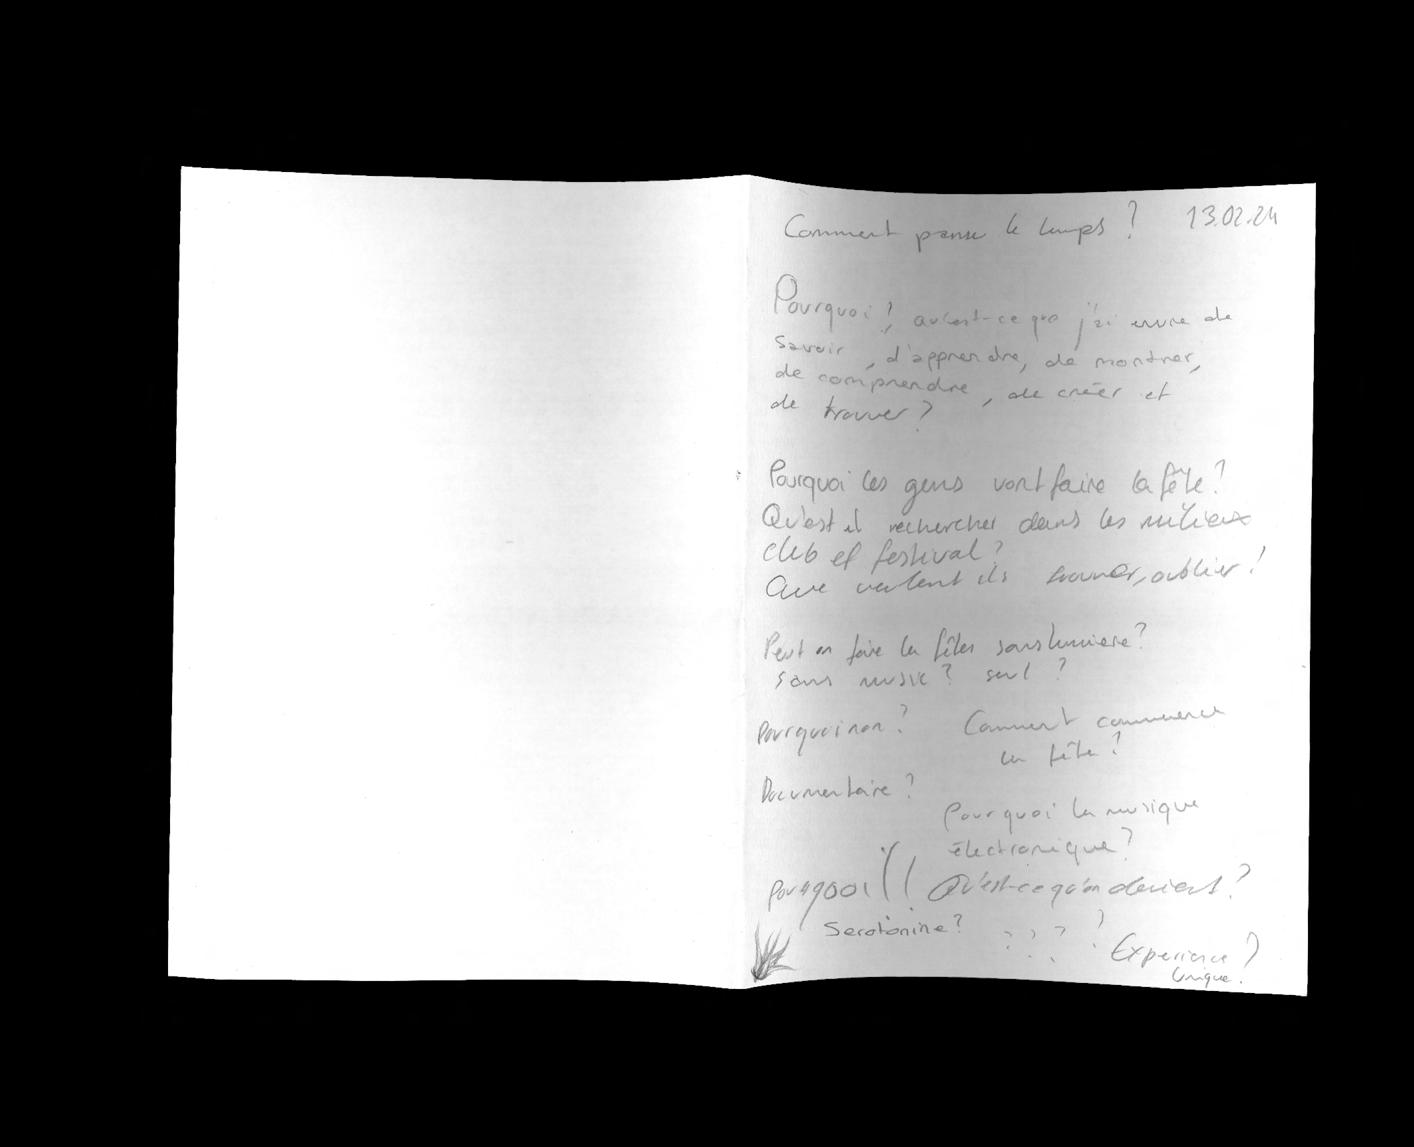 Comment passe le temps ? 13.02.24
Pourquoi ? qu'est-ce que j'ai envie de
savoir, d'apprendre, de montrer,
de comprendre, de créer et
de trouver ?
Pourquoi les gens vont faire la fête ?
Qu'est il rechercher dans les milieux
club et festival ?
Que veulent ils trouver, oublier !
Peut on faire la fêtes sans lumiere ?
sans music ? seul ?
Pourquoi non ? Comment commence
la fête ?
Documentaire ?
Pourquoi la musique
électronique ?
Pourqooi !! Qu'est-ce qu'on devient ?
Serotonine ? ? ? ? ?
Experience ?
Unique.